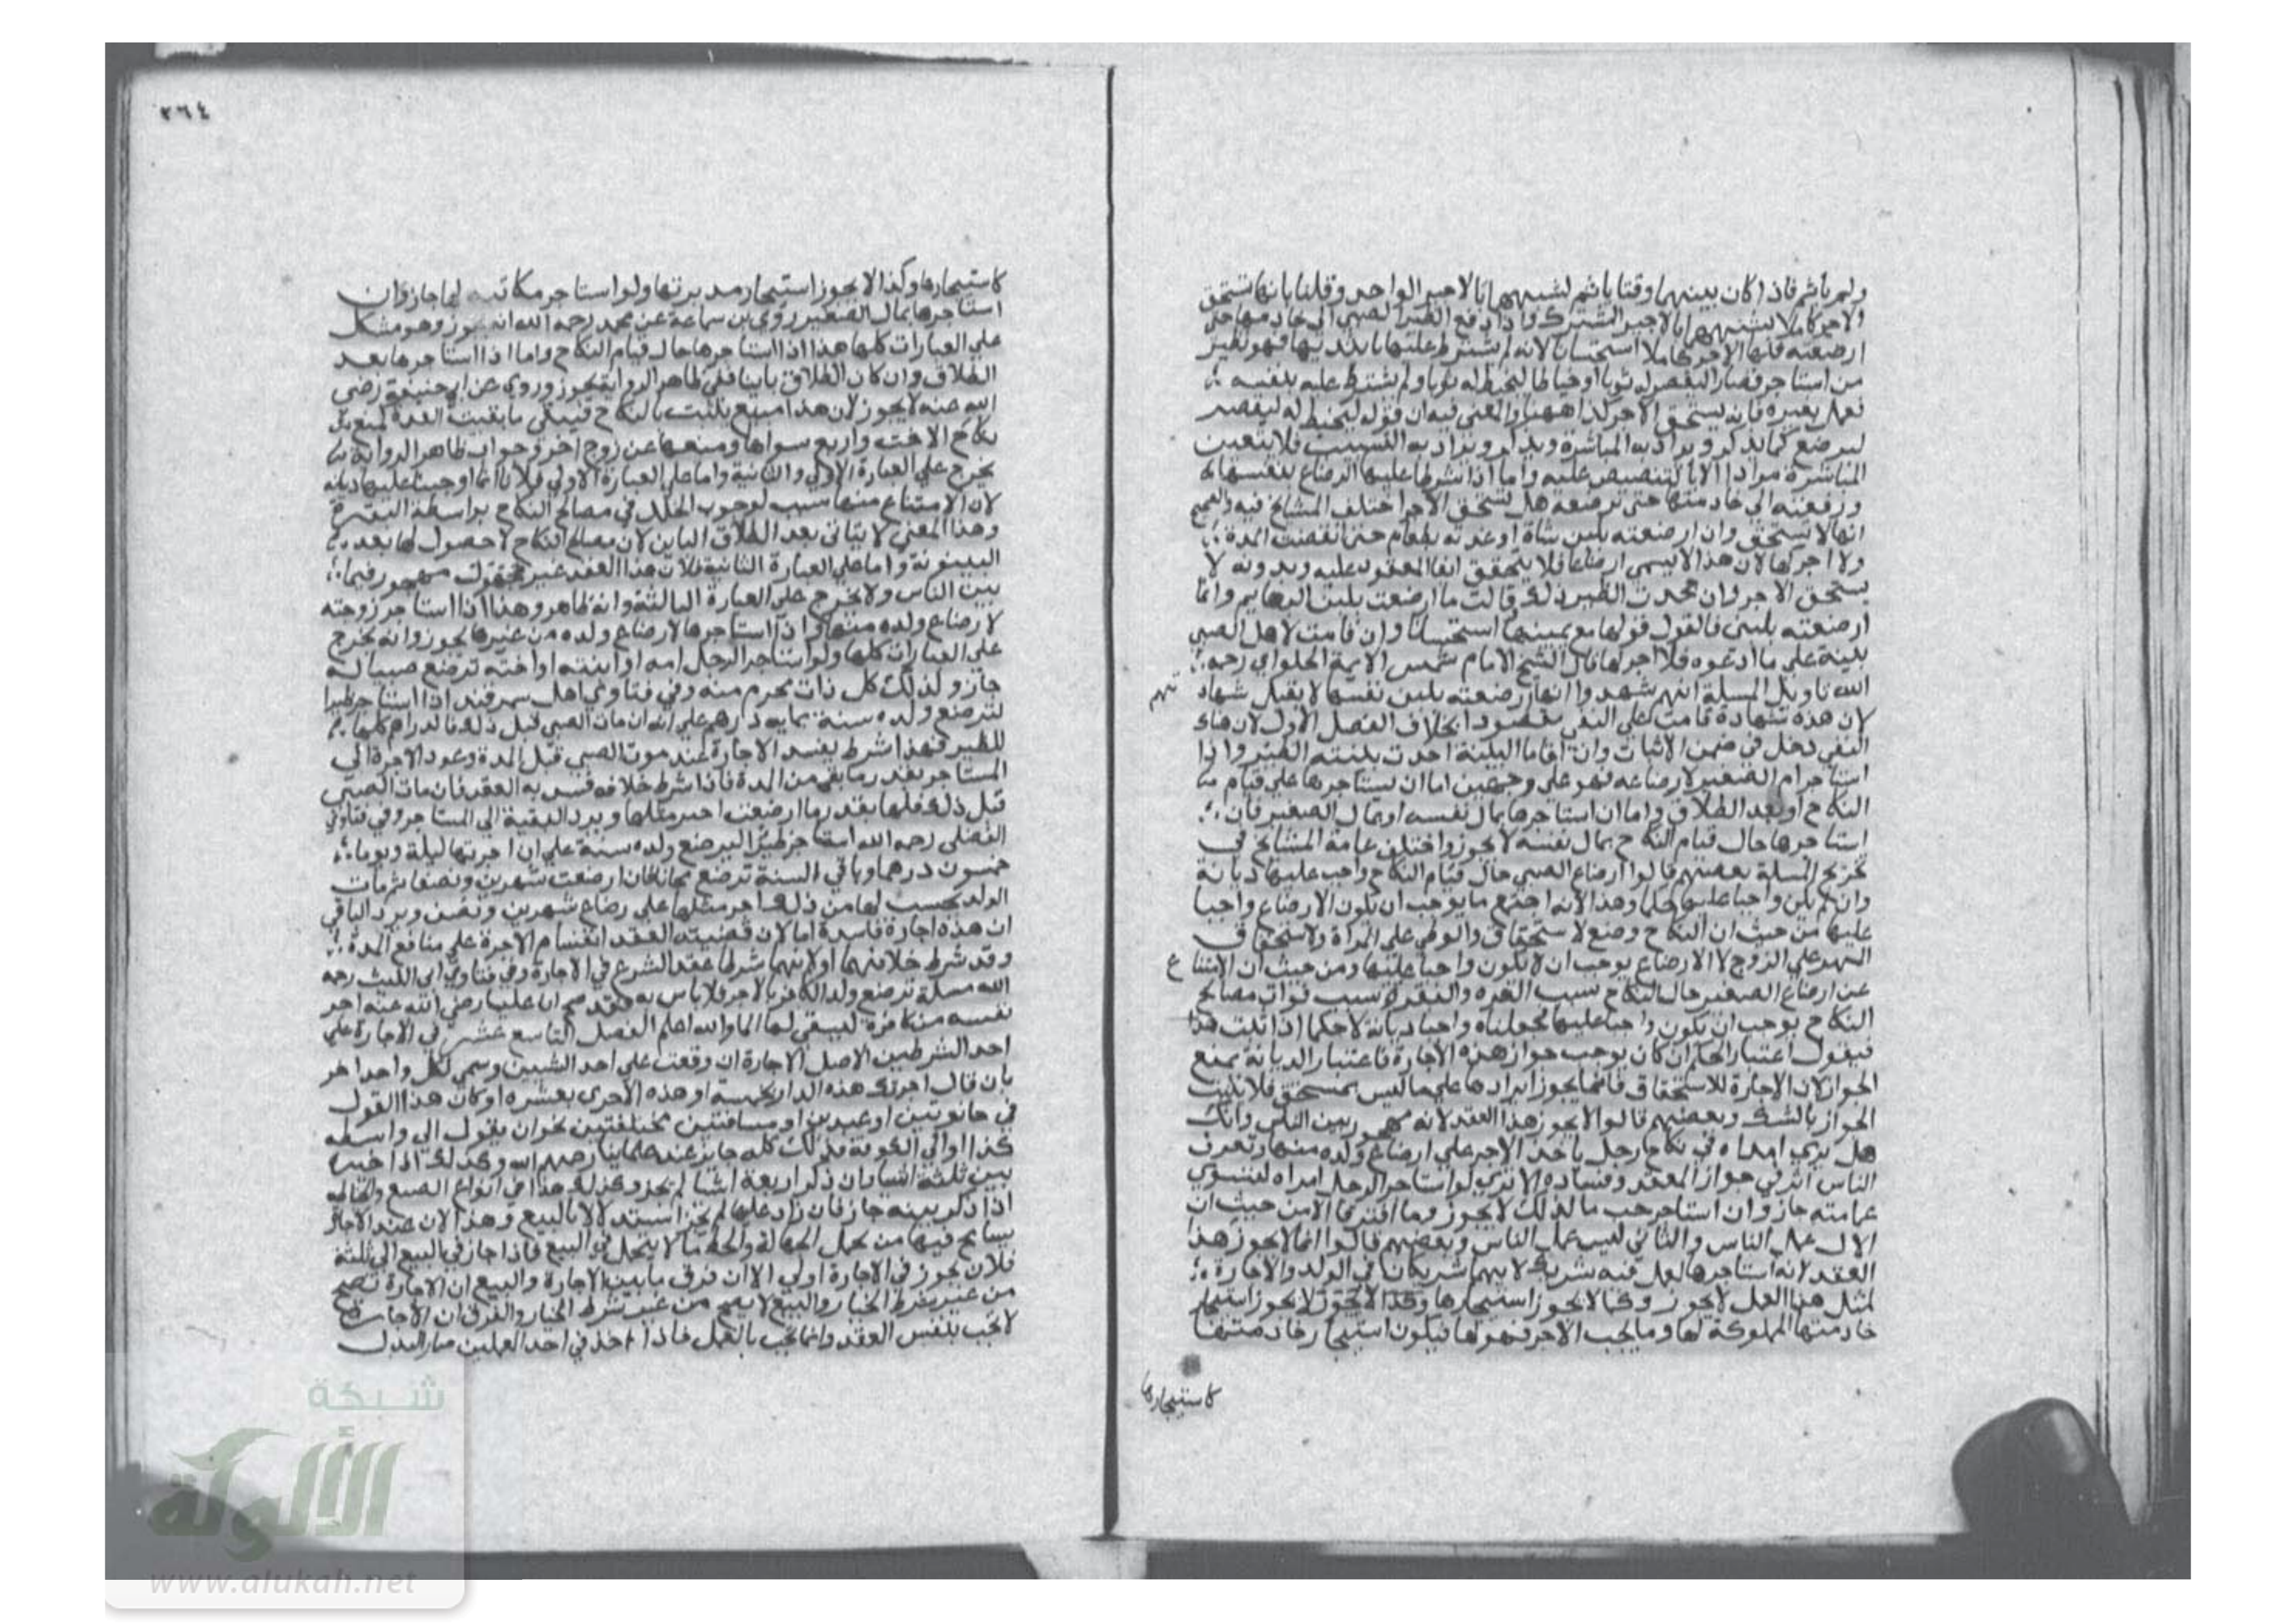 ولم ياثم فاذا كان بينهما وقتا ياثم لشبهها بالاجير الواحد وقلنا بانها تستحق
الاجر كاملا لشبهها بالاجير المشترك واذا دفع الظير الصبي الى خادمها حتى
ارضعته فلها الاجر كاملا استحسانا لانه لم يشترط عليها بابديها فهو نظير
من استاجر قصارا ليقصر له ثوبا او خياطا ليخيط له ثوبا ولم يشترط عليه بنفسه
فعمل بغيره فانه يستحق الاجر كذا ههنا والمعنى فيه ان قوله ليخيط له ليقصر
ليرضع كما يذكر ويراد به المباشرة ويذكر ويراد به التسبيب فلا يتعين
المباشرة مرادا الا بالتنصيص عليه واما اذا شرط عليها الرضاع بنفسها
ودفعته الى خادمتها حتى ترضعه هل تستحق الاجر اختلف المشايخ فيه والصحيح
انها لا تستحق وان ارضعته بلبن شاة او غدته بطعام حتى انقضت المدة
ولا اجر لها لان هذا لا يسمى ارضاعا فلا يتحقق ايفا المعقود عليه وبدونه لا
يستحق الاجر وان جحدت الظير ذلك وقالت ما ارضعت بلبن البهايم وانما
ارضعته بلبنى فالقول قولها مع يمينها استحسانا وان قامت لاهل الصبي
بينة على ما ادعوه فلا اجر لها قال الشيخ الامام شمس الايمة الحلواي رحمه
الله تاويل المسلة انهم شهدوا انها ارضعته بلبن نفسها لا يقبل شهاد تهم
لان هذه شهادة قامت على النفى مقصودا بخلاف الفصل الاول لان هناك
النفي دخل في ضمن الاثبات وان اقاما البينة اخذت ببينة الظير واذا
استاجر ام الصغير لارضاعه فهو على وجهين اما ان يستاجرها على قيام
النكاح او بعد الطلاق واما ان استاجرها بمال نفسه او بمال الصغير فان
استاجرها حال قيام النكاح بمال نفسه لا يجوز واختلف عامة المشايخ في
تخريج المسلة بعضهم قالوا ارضاع الصبي حال قيام النكاح واجب عليها ديانة
وان لم يكن واجبا عليها حكما وهذا لانه اجتمع ما يوجب ان يكون الارضاع واجبا
عليها من حيث ان النكاح وضع لاستحقاق والوطى على المراة ولاستحقاق
المهر على الزوج لا الارضاع يوجب ان لا يكون واجبا عليها ومن حيث ان الامتناع
عن ارضاع الصغير حال النكاح سبب الفره والنفرة سبب فوات مصالح
النكاح يوجب ان يكون واجبا عليها فجعلناه واجبا ديانة لا حكما اذا ثبت هذا
فيقول اعتبار الحكم ان كان يوجب جواز هذه الاجارة فاعتبار الديانة يمنع
الجواز لان الاجارة للاستحقاق فانما يجوز ايرادها على ما ليس بمستحق فلا يثبت
الجواز بالشك وبعضهم قالوا لا يجوز هذا العقد لانه مهجور بين الناس وانك
هل ترى امراة في نكاح رجل ياخذ الاجر على ارضاع ولده منها وتعرف
الناس اثر في جواز العقد وفساده الا ترى لو استاجر الرجل امراة لتسوي
عمامته جاز وان استاجر حب ما لذلك لا يجوز وما افترقا الا من حيث ان
الاول عمل الناس والثاني ليس عمل الناس وبعضهم قالوا انما لا يجوز هذا
العقد لانه استاجرها لعمل فيه شريك لانهما شريكان في الولد والاجارة
لمثل هذا العمل لا يجوز وكما لا يجوز استيجارها وكذا لا يجوز لا يجوز استيجار
خادمتها المملوكة لها وما يجب الاجر فهو لها فيكون استيجار خادمتها
كاستيجارها
٢٦٤
كاستيجارها وكذا لا يجوز استيجار مدبرتها ولو استاجر مكاتبه لها جاز وان
استاجرها بمال الصغير روى بن سماعة عن محمد رحمه الله انه يجوز وهو مشكل
على العبارات كلها هذا اذا استاجرها حال قيام النكاح واما اذا استاجرها بعد
الطلاق وان كان الطلاق باينا ففي ظاهر الرواية يجوز وروي عن ابي حنيفة رضى
الله عنه لا يجوز لان هذا منيع يثبت بالنكاح فيبقى ما بقيت العدة لمنع
نكاح الاخت واربع سواها ومنعها عن زوج اخر وجواب ظاهر الرواية
يخرج على العبارة الاولى والثانية واما على العبارة الاولى فلانا انما اوجبنا عليها ديانه
لان الامتناع منها سبب لوجوب الخلل في مصالح النكاح بواسطة النفرة
وهذا المعنى لا يتاتى بعد الطلاق الباين لان مصالح النكاح لا حصول لها بعد
البينونة واما على العبارة الثانية فلان هذا العقد غير مهجور فيما
بين الناس ولا يخرج على العبارة الثالثة وانه ظاهر وهذا اذا استاجر زوجته
لارضاع ولده منها واذا استاجرها لارضاع ولده من غيرها يجوز وانه يخرج
على العبارات كلها ولو استاجر الرجل امه او ابنته او اخته ترضع صبيا له
جاز ولذلك كل ذات محرم منه وفي فتاوي اهل سمرقند اذا استاجر ظيرا
لترضع ولده سنة بمايه درهم على انه ان مات الصبي قبل ذلك فالدراهم كلها
للظير فهذا شرط يفسد الاجارة لمند موت الصبي قبل المدة وعود الاجرة الى
المستاجر بقدر ما بقى من المدة فاذا شرط خلافه فسد به العقد فان مات الصبي
قبل ذلك فلها بقدر ما ارضعت اجر مثلها ويرد البقية الى المستاجر وفي فتاوي
الفضلى رحمه الله استاجر ظيرا ليرضع ولده سنة على ان اجرتها ليلة ويوما
خمسون درهما وباقى السنة ترضع مجانا فان ارضعت شهرين ونصفا ثم مات
الولد يحسب لها من ذلك اجر مثلها على رضاع شهرين ونصف ويرد الباقي
ان هذه اجارة فاسدة اما لان قضيته العقد انقسام الاجرة على منافع المدة
وقد شرط خلافهما او لانهما شرطا عقد الشرع في الاجارة وفي فتاوي ابي الليث رحمه
الله مسلة ترضع ولد الكافر بالاجر فلا باس به فقد صح ان عليا رضي الله عنه اجر
نفسه من كافرة ليسقى لها الما والله اعلم الفصل التاسع عشر في الاجارة على
احد الشرطين الاصل الاجارة ان وقعت على احد الشيين وسمي لكل واحد اجر
بان قال اجرتك هذه الدار بخمسة او هذه الاخرى بعشره او كان هذا القول
في حانوتين او عبدين او مسافتين مختلفتين نحو ان يقول الي واسط
كذا او الي الكوفة فذلك كله جايز عند علماينا رحمهم الله وكذلك اذا خيره
بين ثلثة اشيا وان ذكر اربعة اشيا لم يجز وكذلك هذا في انواع الصبغ والخياطه
اذا ذكر بينه جاز فان زاد عليها لم يجز استدلالا بالبيع وهذا لان عقد الاجار
يسامح فيها من تحمل الجهالة والخطر ما لا يتحمل في البيع فاذا جاز في البيع الى ثلثة
فلان يجوز في الاجارة اولى الا ان فرق ما بين الاجارة والبيع ان الاجارة تصح
من غير شرط الخيار والبيع لا يصح من غير شرط الخيار والفرق ان الاجارة
لا تجب بنفس العقد وانما تجب بالعمل فاذا اخذ في احد العملين صار البدل
شبكة
الألوكة
www.alukah.net